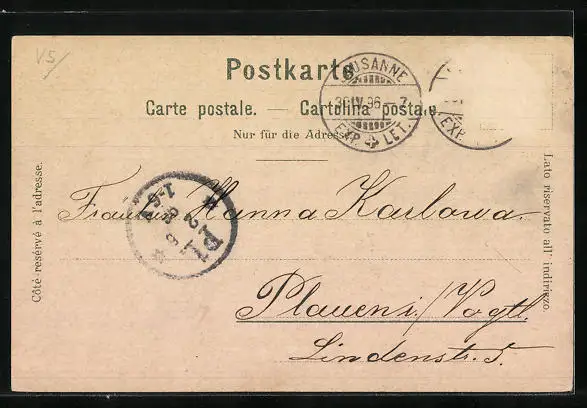 VS
Postkarte
Carte postale. — Cartolina postale.
Nur für die Adresse.
LAUSANNE
30 IV. 96 – 7
EXP. LET.
EXP.
Côté réservé à l'adresse.
Lato riservato all' indirizzo.
Fräulein Hanna Karlowa.
Plauen i/Vogtl.
Lindenstr. 5.